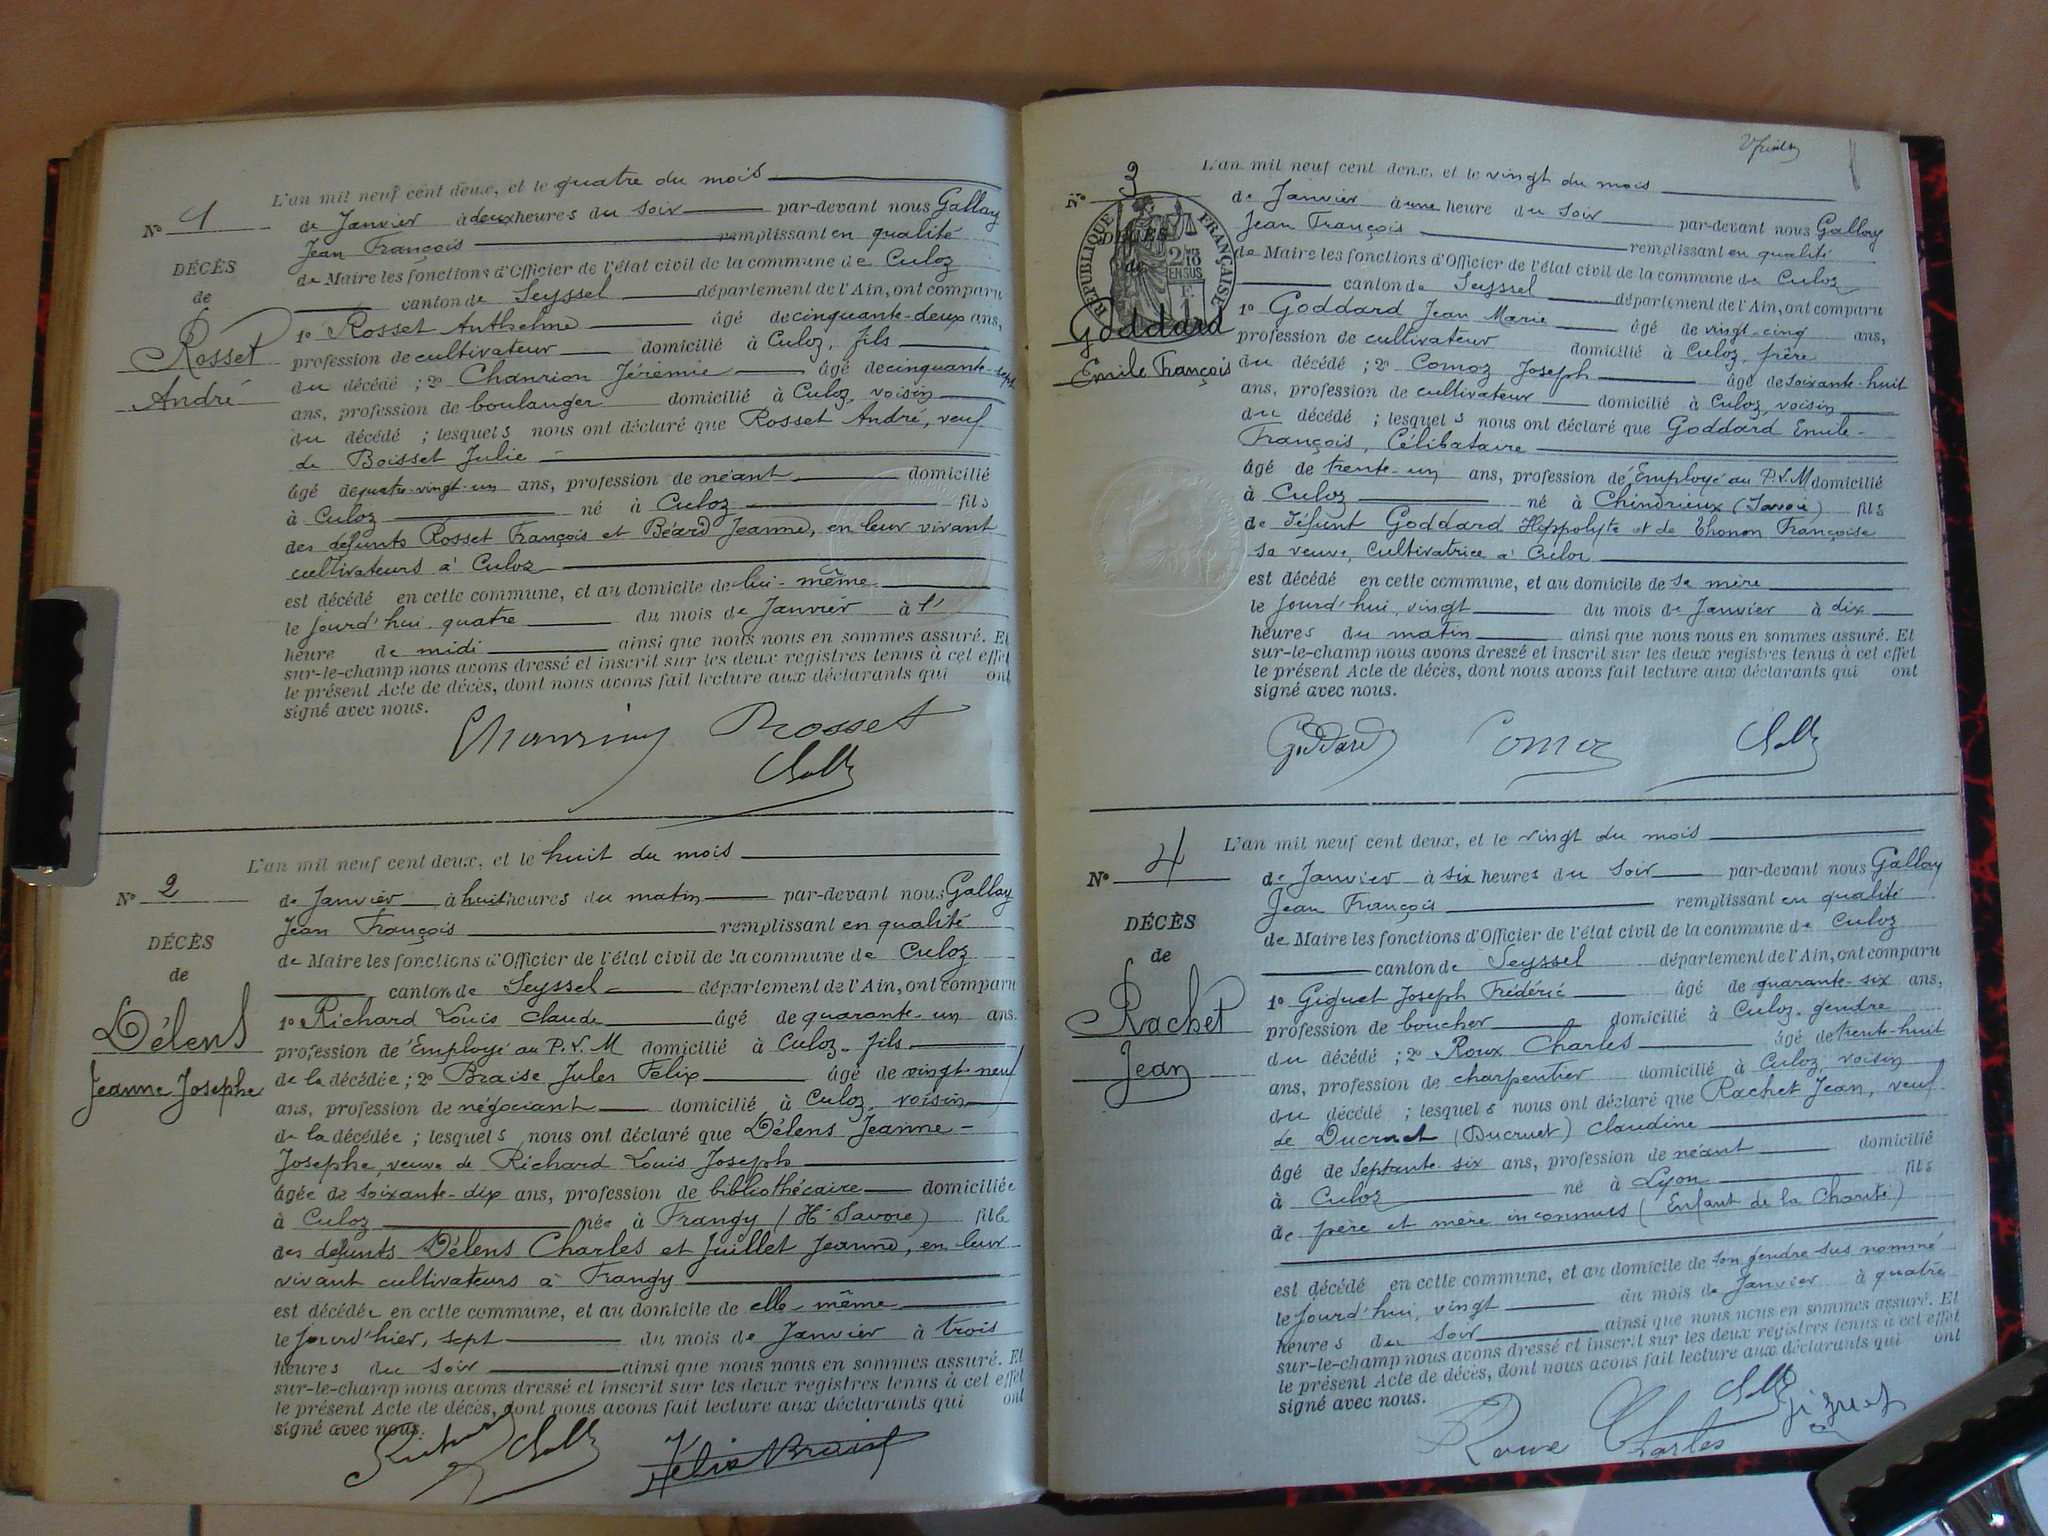 L'an mil neuf cent deux, et le quatre du mois
N° 1
de Janvier à deux heures du soir par-devant nous Gallay
Jean François remplissant en qualité
DÉCÈS
de
Rosset
André
de Maire les fonctions d'Officier de l'état civil de la commune de Culoz
canton de Seyssel département de l'Ain, ont comparu
1° Rosset Anthelme âgé de cinquante-deux ans,
profession de cultivateur domicilié à Culoz, fils
du décédé ; 2° Chanrion Jérémie âgé de cinquante-sept
ans, profession de boulanger domicilié à Culoz, voisin
du décédé ; lesquels nous ont déclaré que Rosset André, veuf
de Boisset Julie
âgé de quatre-vingt-un ans, profession de néant domicilié
à Culoz né à Culoz fils
des défunts Rosset François et Béard Jeanne, en leur vivant
cultivateurs à Culoz
est décédé en cette commune, et au domicile de lui-même
le jourd'hui quatre du mois de Janvier à l'
heure de midi ainsi que nous nous en sommes assuré. Et
sur-le-champ nous avons dressé et inscrit sur les deux registres tenus à cet effet
le présent Acte de décès, dont nous avons fait lecture aux déclarants qui ont
signé avec nous.
Chanrion Rosset
L'an mil neuf cent deux, et le huit du mois
N° 2
de Janvier à huit heures du matin par-devant nous Gallay
Jean François remplissant en qualité
DÉCÈS
de
Délens
Jeanne Josephe
de Maire les fonctions d'Officier de l'état civil de la commune de Culoz
canton de Seyssel département de l'Ain, ont comparu
1° Richard Louis Claude âgé de quarante-un ans.
profession de Employé au P.L.M domicilié à Culoz, fils
de la décédée ; 2° Braise Jules Félix âgé de vingt-neuf
ans, profession de négociant domicilié à Culoz, voisin
de la décédée ; lesquels nous ont déclaré que Délens Jeanne-
Josephe, veuve de Richard Louis Joseph
âgée de soixante-dix ans, profession de bibliothécaire domiciliée
à Culoz née à Frangy (Hte Savoie) fille
des défunts Délens Charles et Juillet Jeanne, en leur
vivant cultivateurs à Frangy
est décédée en cette commune, et au domicile de elle-même
le jourd'hier, sept du mois de Janvier à trois
heures du soir ainsi que nous nous en sommes assuré. Et
sur-le-champ nous avons dressé et inscrit sur les deux registres tenus à cet effet
le présent Acte de décès, dont nous avons fait lecture aux déclarants qui ont
signé avec nous.
Richard Félix Braise
L'an mil neuf cent deux, et le vingt du mois
N° 3
RÉPUBLIQUE FRANÇAISE
DÉCÈS
de
Goddard
Emile François
de Janvier à une heure du soir par-devant nous Gallay
Jean François remplissant en qualité
de Maire les fonctions d'Officier de l'état civil de la commune de Culoz
canton de Seyssel département de l'Ain, ont comparu
1° Goddard Jean Marie âgé de vingt-cinq ans,
profession de cultivateur domicilié à Culoz, frère
du décédé ; 2° Comoz Joseph âgé de soixante-huit
ans, profession de cultivateur domicilié à Culoz, voisin
du décédé ; lesquels nous ont déclaré que Goddard Emile-
François, Célibataire
âgé de trente-un ans, profession de Employé au P.L.M domicilié
à Culoz né à Chindrieux (Savoie) fils
de défunt Goddard Hippolyte et de Thonon Françoise
sa veuve, Cultivatrice à Culoz
est décédé en cette commune, et au domicile de sa mère
le jourd'hui, vingt du mois de Janvier à dix
heures du matin ainsi que nous nous en sommes assuré. Et
sur-le-champ nous avons dressé et inscrit sur les deux registres tenus à cet effet
le présent Acte de décès, dont nous avons fait lecture aux déclarants qui ont
signé avec nous.
Goddard Comoz
L'an mil neuf cent deux, et le vingt du mois
N° 4
de Janvier à six heures du soir par-devant nous Gallay
Jean François remplissant en qualité
DÉCÈS
de
Rachet
Jean
de Maire les fonctions d'Officier de l'état civil de la commune de Culoz
canton de Seyssel département de l'Ain, ont comparu
1° Giguet Joseph Frédéric âgé de quarante-six ans,
profession de boucher domicilié à Culoz, gendre
du décédé ; 2° Roux Charles âgé de trente-huit
ans, profession de charpentier domicilié à Culoz, voisin
du décédé ; lesquels nous ont déclaré que Rachet Jean, veuf
de Ducruet (Ducruet) Claudine
âgé de septante-six ans, profession de néant domicilié
à Culoz né à Lyon fils
de père et mère inconnus (Enfant de la Charité)
est décédé en cette commune, et au domicile de son gendre sus nommé
le jourd'hui, vingt du mois de Janvier à quatre
heures du soir ainsi que nous nous en sommes assuré. Et
sur-le-champ nous avons dressé et inscrit sur les deux registres tenus à cet effet
le présent Acte de décès, dont nous avons fait lecture aux déclarants qui ont
signé avec nous.
Roux Charles Giguet